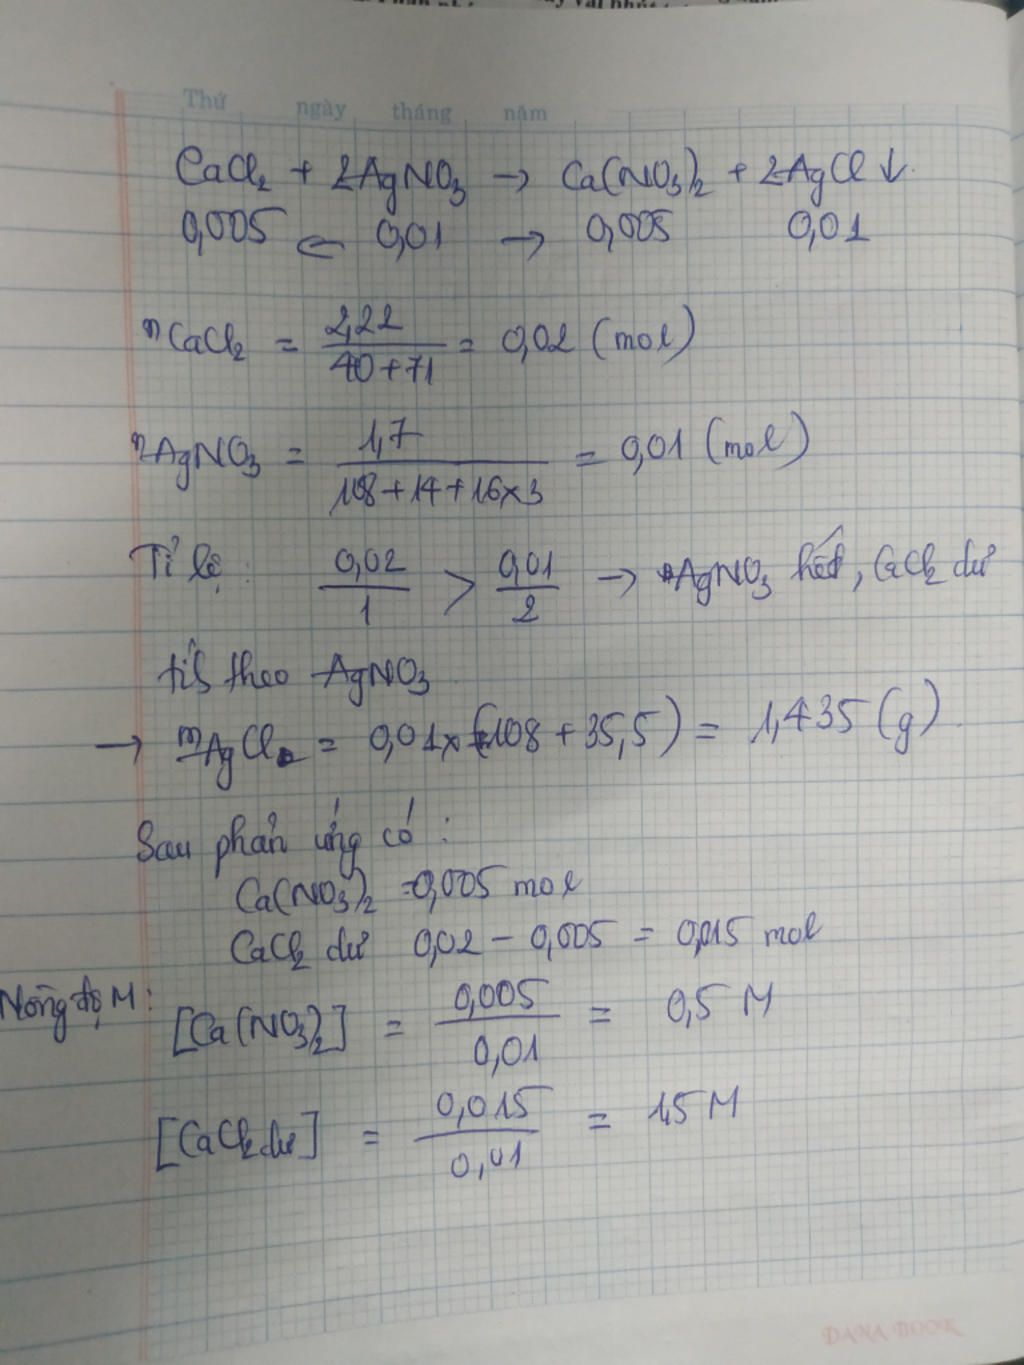 Thứ ngày tháng năm
CaCl₂ + 2AgNO₃ → Ca(NO₃)₂ + 2AgCl ↓.
0,005 ← 0,01 → 0,005 0,01
nCaCl₂ = 2,22 / 40+71 = 0,02 (mol)
nAgNO₃ = 1,7 / 108+14+16×3 = 0,01 (mol)
Tỉ lệ: 0,02/1 > 0,01/2 → AgNO₃ hết, CaCl₂ dư
tính theo AgNO₃
→ mAgCl = 0,01×(108+35,5) = 1,435 (g).
Sau phản ứng có:
Ca(NO₃)₂ = 0,005 mol
CaCl₂ dư 0,02 – 0,005 = 0,015 mol
Nồng độ M:
[Ca(NO₃)₂] = 0,005 / 0,01 = 0,5 M
[CaCl₂ dư] = 0,015 / 0,01 = 1,5 M
DANA BOOK